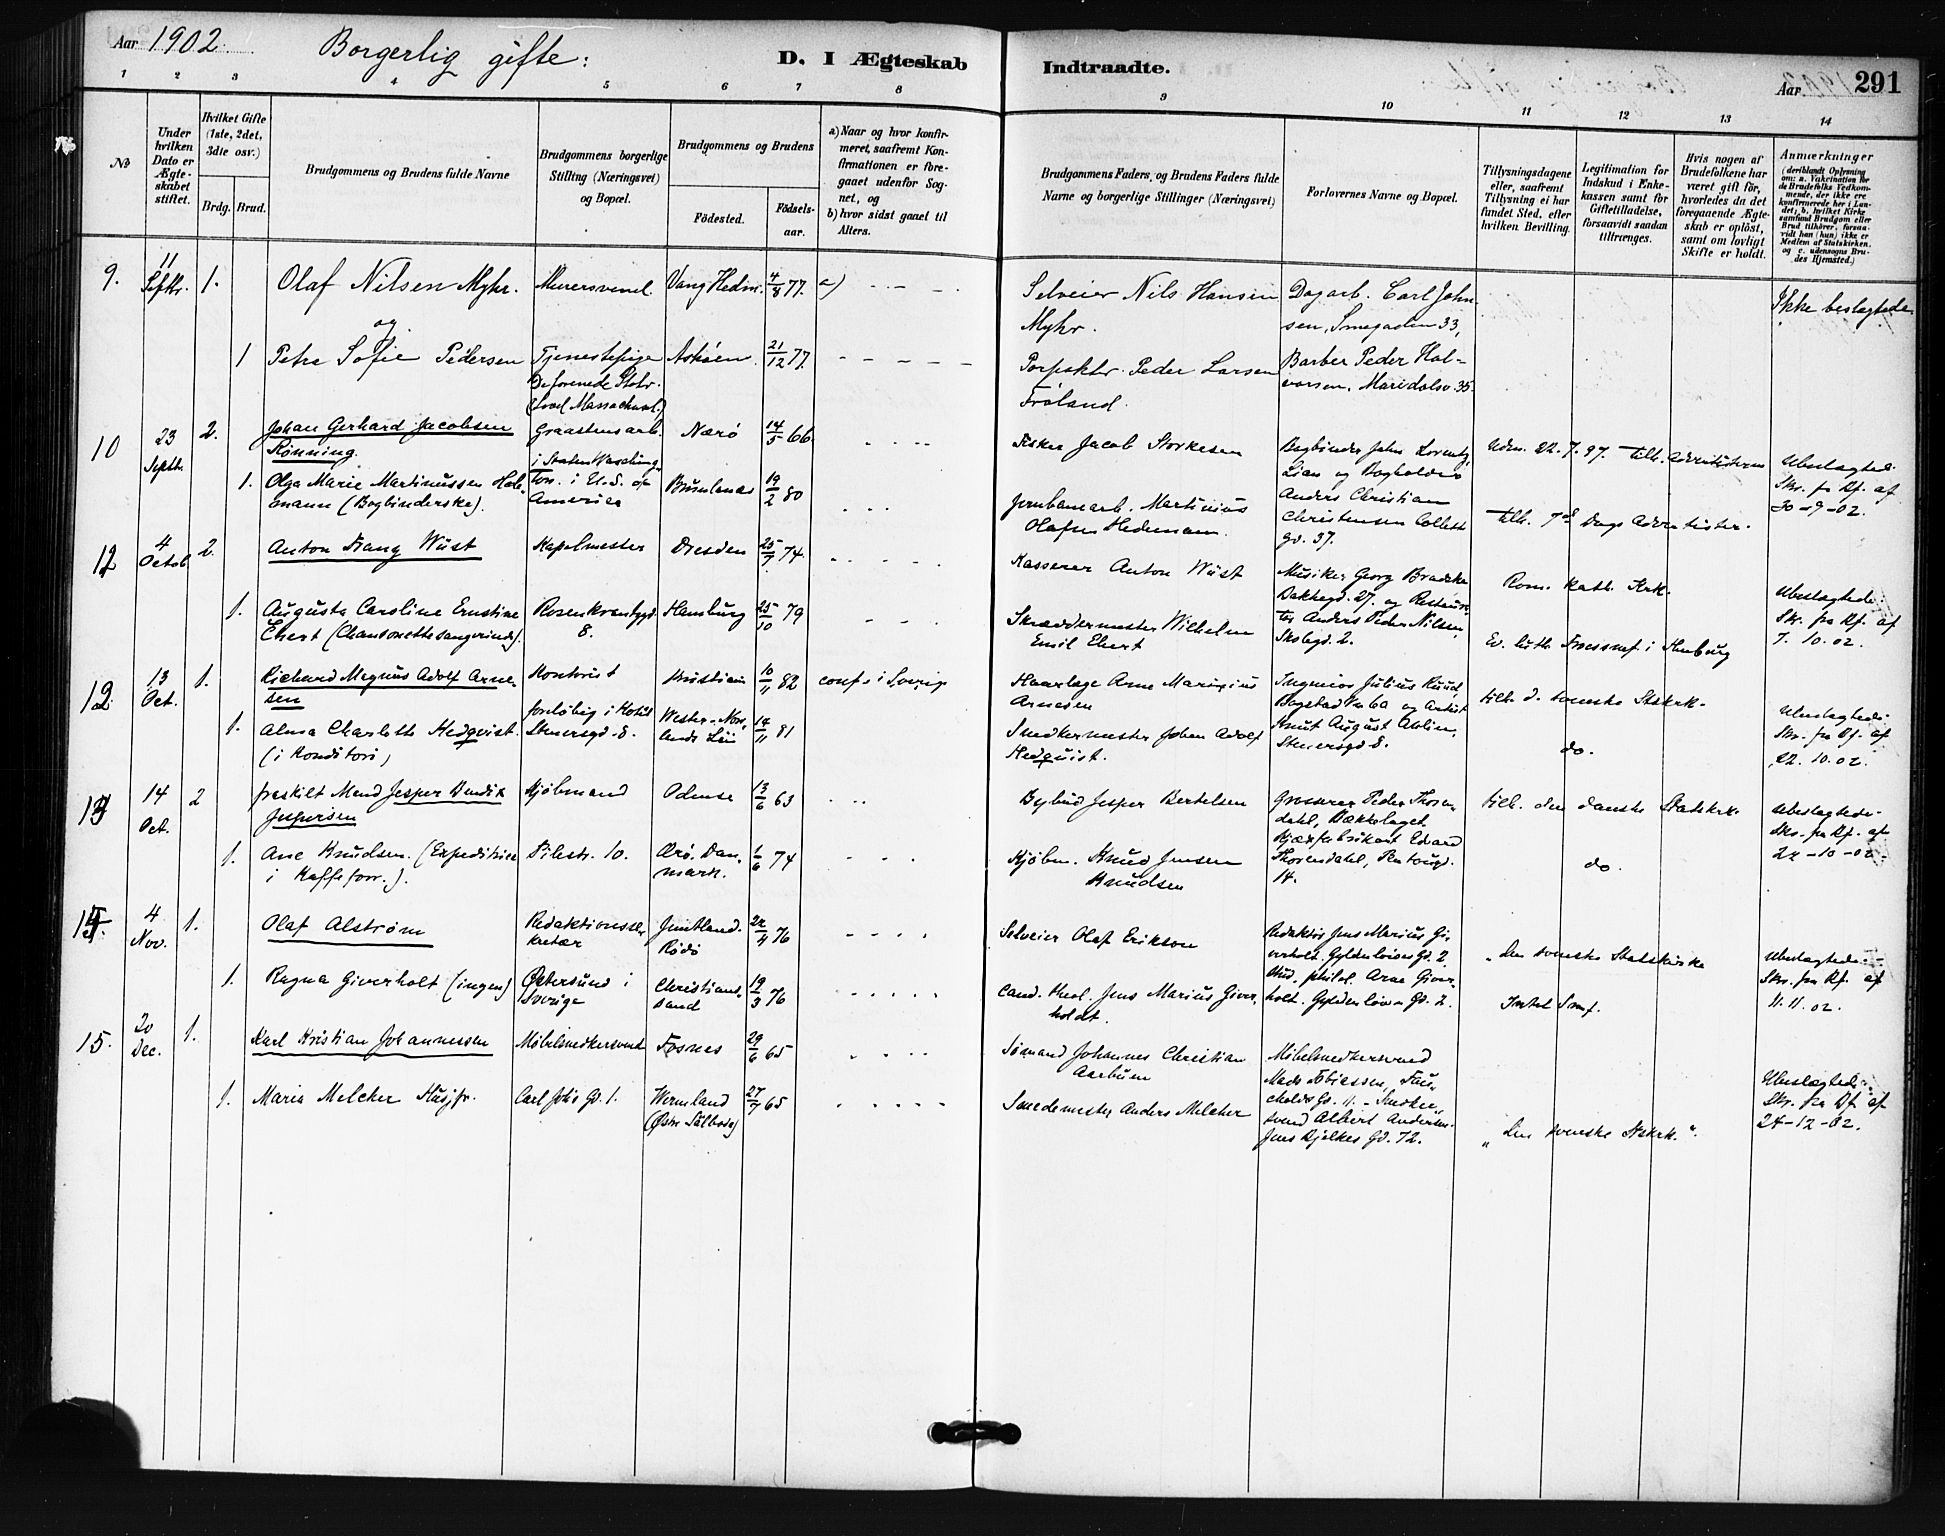 Aar 1902.
Borgerlig gifte:
D. I Ægteskab
Indtraadte.
Aar
291
1 2 3 4 5 6 7 8 9 10 11 12 13 14
No
Under
hvilken
Dato er
Ægte-
skabet
stiftet.
Hvilket Gifte
(1ste, 2det,
3die osv.)
Brdg. Brud.
Brudgommens og Brudens fulde Navne
Brudgommens borgerlige
Stilling (Næringsvei)
og Bopæl.
Brudgommens og Brudens
Födested.
Födsels-
aar.
a) Naar og hvor konfir-
meret, saafremt Kon-
firmationen er fore-
gaaet udenfor Sog-
net, og
b) hvor sidst gaaet til
Alters.
Brudgommens Faders, og Brudens Faders fulde
Navne og borgerlige Stillinger (Næringsvei)
Forlovernes Navne og Bopæl.
Tillysningsdagene
eller, saafremt
Tillysning ei har
fundet Sted, efter
hvilken Bevilling.
Legitimation for
Indskud i Enke-
kassen samt for
Giftetilladelse,
forsaavidt saadan
tiltrænges.
Hvis nogen af
Brudefolkene har
været gift för,
hvorledes da det
foregaaende Ægte-
skab er oplöst,
samt om lovligt
Skifte er holdt.
Anmærkninger
(deriblandt Oplysning
om: a. Vakcination for
de Brudefolks Vedkom-
mende, der ikke ere
konfirmerede her i Lan-
det; b. hvilket Kirke-
samfund Brudgom eller
Brud tilhörer, forsaa-
vidt han (hun) ikke er
Medlem af Statskirken,
og c. udensogns Bru-
des Hjemsted.)
9. 11 Septbr. 1. Olaf Nilsen Myhr. Murersvend. Vang Hedm. 4/8 77. a)
Selveier Nils Hansen
Myhr.
Dagarb. Carl John-
sen, Smegaden 33,
Ikke beslægtede
og
1 Petra Sofie Pedersen Tjenestepige Askøen 21/12 77.
Peder Larsen
Frøland.
Barber Peder Hal-
vorsen, Maridalsv 35
De forenede Stater.
10 23 Septbr. 2. Johan Gerhard Jacobsen
Rønning.
Graastensarb.
i Staten Washing-
ton. i U. S. of
America
Nærö 14/5 66
Fisker Jacob Storkesen
Bogbinder John Lorentz
Lian og Bogholder
Anders Christian
Christensen Collett
gd. 37.
Udm. 22. 7. 97. Tilh. Adventisterne
Ubeslægtede.
Skr. fr Rf. af
30-9-02.
1. Olga Marie Martinussen Hol-
mann (Bogbinderske).
Brunlanæs 19/2 80
Jernbanearb. Martinius
Olafsen Hedemann.
Tilh. 7de Dags Adventister.
12 4 Octob. 2. Anton Franz Wüst Kapelmester Dresden 25/7 74.
Kasserer Anton Wüst
Musiker Georg Bradske
Bakkegd. 27. og Restaura-
tør Anders Peder Nilsen,
Skolegd. 2.
Rom. kath. Krk.
Ubeslægtede.
Skr. fra Rf. af
7. 10. 02.
1. Augusta Caroline Ernstine
Ebert (Chansonettesangerinde).
Rosenkrantzgd.
8.
Hamburg 25/10 79
Skræddermester Wilhelm
Emil Ebert
Ev. luth. i Hamburg
12. 13 Oct. 1. Richard Magnus Adolf Arne-
sen
Kontorist Kristiania 10/11 82 conf. i Sverig
Arne Marinius
Arnesen
Ingeniør Julius Ruud,
Bogstad V. 60 og Artist
Knut August Ahlin,
Stenersgd 8.
tilh. d. svenske Stskrk.
Ubeslægtede.
Skr. fra Rf. af
22. 10. 02.
1. Alma Charlotte Hedqvist.
(i Konditori)
foreløbig i Hotel
Stenersgd. 8.
Wester-Norr-
lands Län
14/11 81
Snedkermester Johan Adolf
Hedquist.
do.
13 14 Oct. 2 fraskilt Mand Jesper Bendix
Jespersen
Kjøbmand Odense 13/6 63
Bybud Jesper Bertelsen
Grosserer Peder Thoren-
dahl, Bækkelaget
Kjæxfabrikant Edvard
Thorendahl,
14.
tilh. den danske Statskrk.
Ubeslægtede.
Skr. fra Rf. af
22-10-02.
1. Ane Knudsen. (Expeditrice
i Kaffeforr.).
Pilestr. 10. Ærö. Dan-
mark.
1/6 74
Kjøbm. Knud Jensen
Knudsen
do.
14. 4 Nov. 1. Olaf Alstrøm
Redaktionsse-
kretær
Jemtland.
Rödö
22/4 76
Selveier Olaf Erikson
Redaktör Jens Marius Gi-
verholt. Gyldenløves Gd. 2
stud. philol. Arne Giver-
holt. Gyldenløves Gd. 2.
„Den svenske Statskirke
Ubeslægtede.
Skr. fra Rf. af
11. 11. 02.
1. Ragna Giverholt (ingen)
Østersund i
Sverige
Christians-
sand
19/3 76
Cand. theol. Jens Marius Giver-
holdt.
Intet Smf.
15. 20 Dec. 1. Karl Kristian Johannessen Møbelsnedkersvend Fosnes 29/6 65
Sömand Johannes Christian
Aarbuen
Møbelsnedkersvend
Mads Tobiassen, Fau-
chalds Gd. 11. - Snedker-
svend Albert Andersen
Jens Bjelkes Gd. 72.
Ubeslægtede.
Skr. fra Rf. af
24-12-02.
1. Maria Melcher Husjfr. Carl Johs Gd. 1. Wermland
(Østre )
27/7 65
Smedemester Anders Melcher
„Den svenske Stskrk.“.